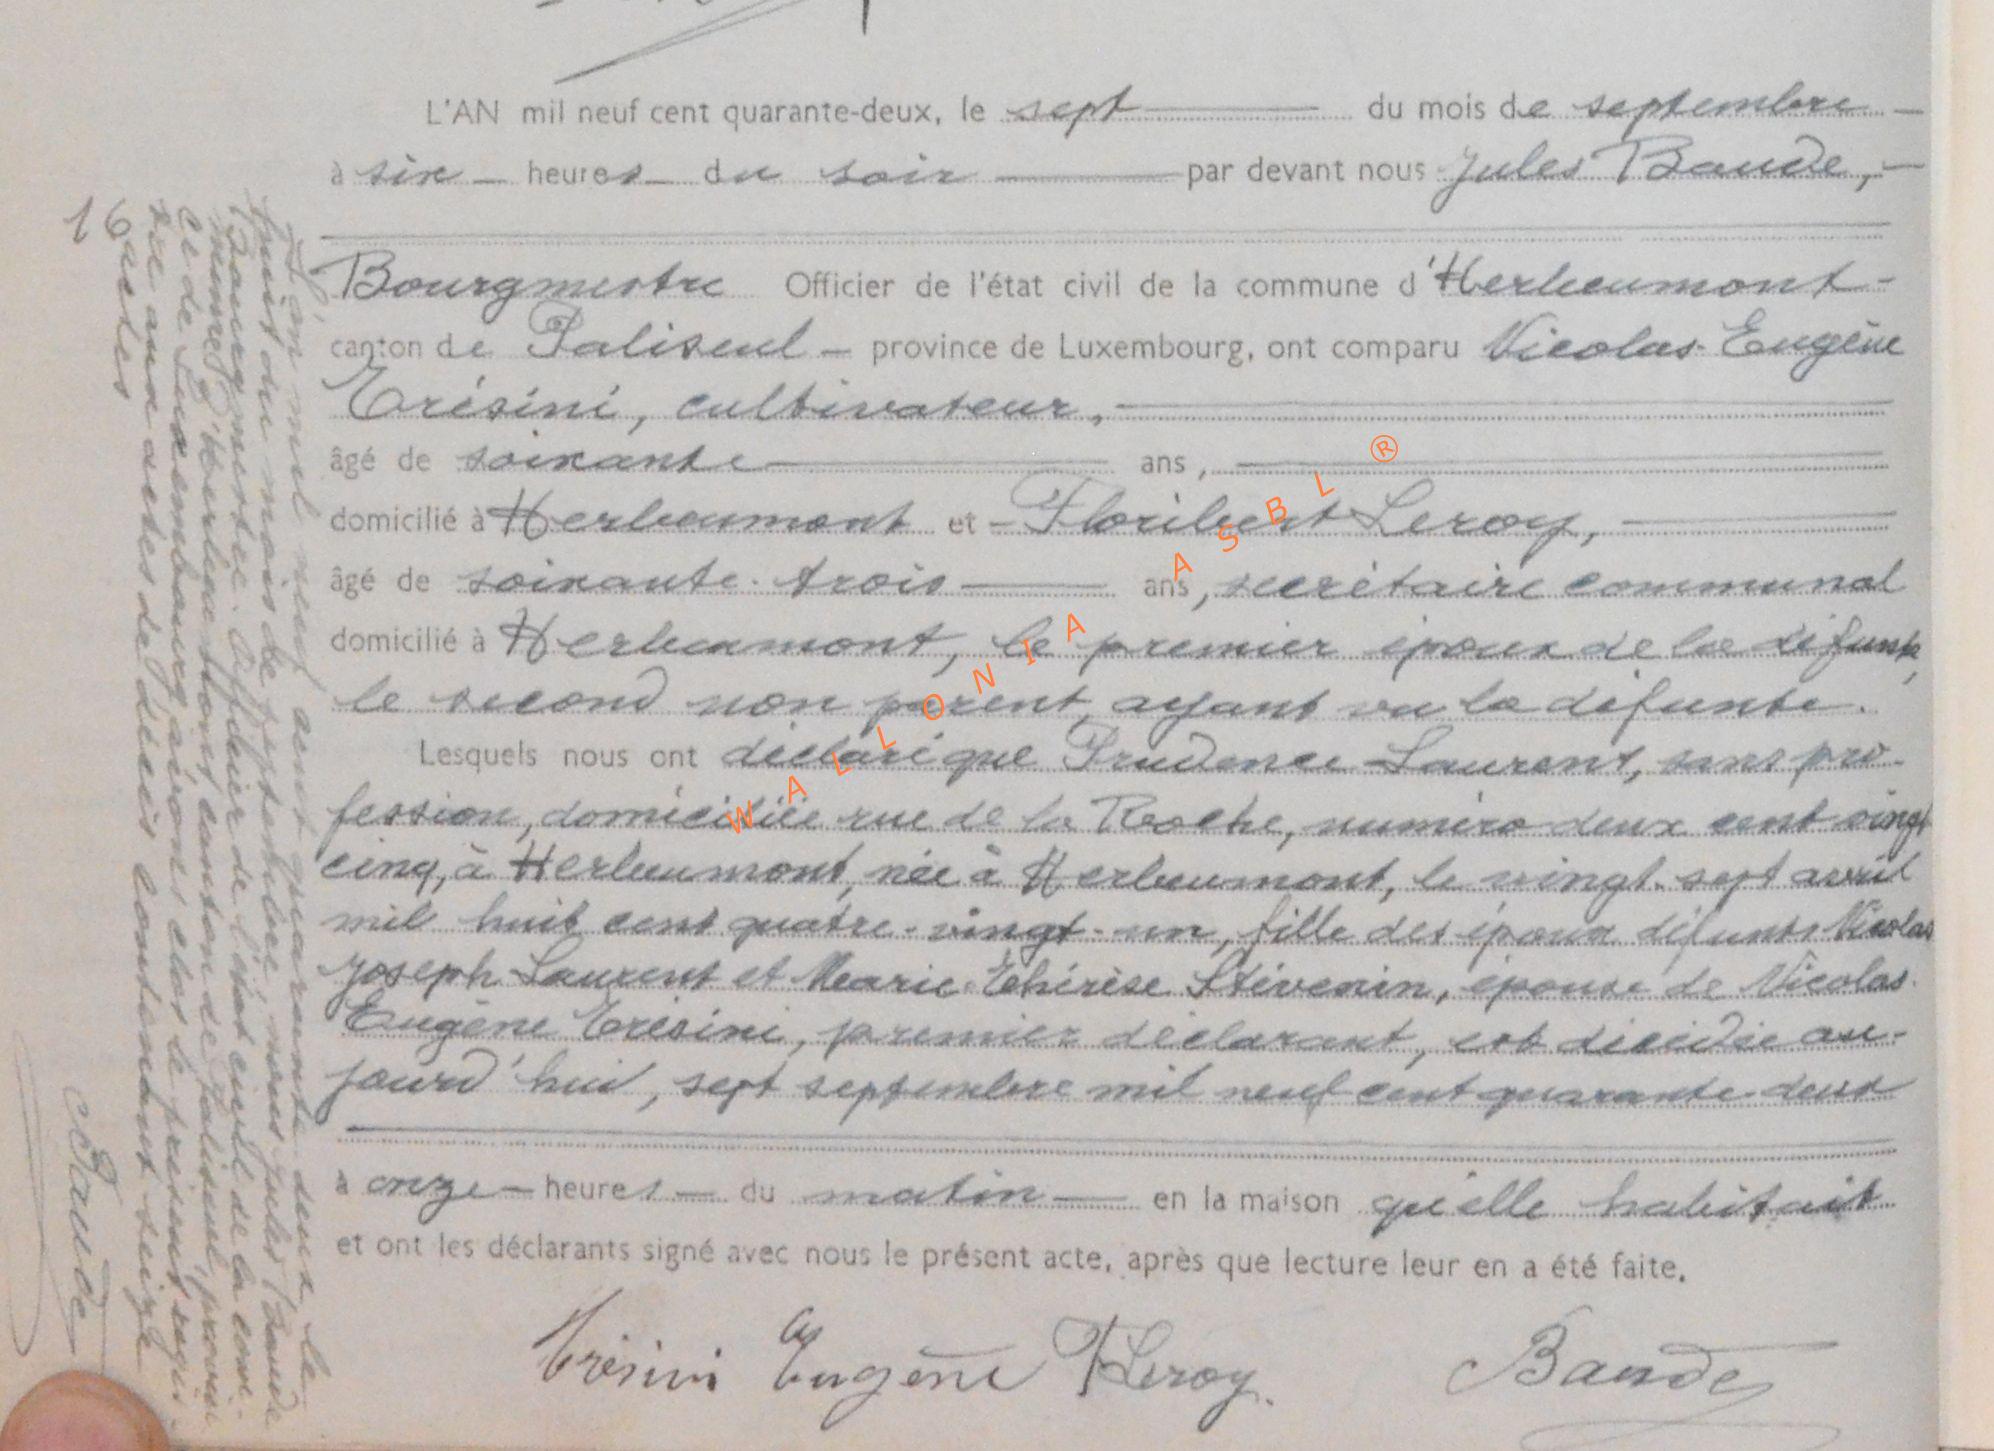 L'AN mil neuf cent quarante-deux, le sept du mois de septembre
à six heures du soir par devant nous Jules Baude,
Bourgmestre Officier de l'état civil de la commune d'Herbeumont
canton de Paliseul province de Luxembourg, ont comparu Nicolas-Eugène
Trésini, cultivateur,
âgé de soixante ans,
domicilié à Herbeumont et Floribert Leroy,
âgé de soixante-trois ans, secrétaire communal
domicilié à Herbeumont, le premier époux de la défunte,
le second non parent, ayant vu la défunte.
Lesquels nous ont déclaré que Prudence Laurent, sans pro-
fession, domiciliée rue de la Roche, numéro deux cent vingt
cinq, à Herbeumont, née à Herbeumont, le vingt-sept avril
mil huit cent quatre-vingt-un, fille des époux défunts Nicolas
Joseph Laurent et Marie-Thérèse Stévenin, épouse de Nicolas
Eugène Trésini, premier déclarant, est décédée au-
jourd'hui, sept septembre mil neuf cent quarante-deux
à onze heures du matin en la maison qu'elle habitait
et ont les déclarants signé avec nous le présent acte, après que lecture leur en a été faite.
Trésini Eugène FLeroy. Baude
L'an mil neuf cent quarante deux, le
huit du mois de septembre, nous Jules Baude
Bourgmestre, Officier de l'état civil de la com-
mune d'Herbeumont, canton de Paliseul, provin
ce de Luxembourg, avons clos le présent regis-
tre aux actes de décès contenant seize
actes
16
Baude
WALLONIA ASBL ®